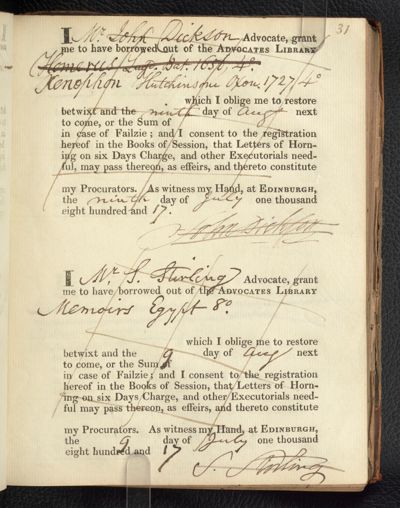 31
I Mr. John Dickson Advocate, grant
me to have borrowed out of the ADVOCATES LIBRARY
Homerus Lugd. Bat. 1656. 4o
Xenophon Hutchinsoni Oxon. 1727/4o
which I oblige me to restore
betwixt and the ninth day of Augt next
to come, or the Sum of
in case of Failzie; and I consent to the registration
hereof in the Books of Session, that Letters of Horn-
ing on six Days Charge, and other Executorials need-
ful, may pass thereon, as effeirs, and thereto constitute
my Procurators. As witness my Hand, at EDINBURGH,
the ninth day of July one thousand
eight hundred and 17.
John Dickson
I Mr. S. Stirling Advocate, grant
me to have borrowed out of the ADVOCATES LIBRARY
Memoirs Egypt 8o.
which I oblige me to restore
betwixt and the 9 day of Aug next
to come, or the Sum of
in case of Failzie; and I consent to the registration
hereof in the Books of Session, that Letters of Horn-
ing on six Days Charge, and other Executorials need-
ful may pass thereon, as effeirs, and thereto constitute
my Procurators. As witness my Hand, at EDINBURGH,
the 9 day of July one thousand
eight hundred and 17
S. Stirling